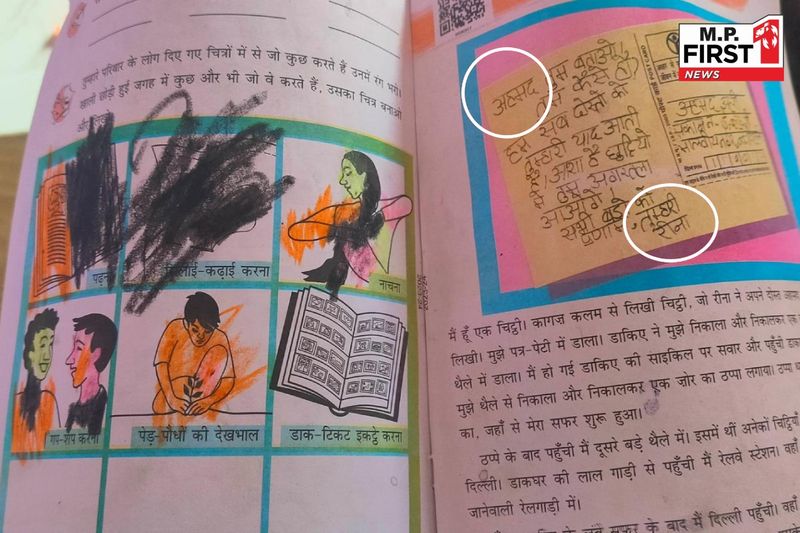 तुम्हारे परिवार के लोग दिए गए चित्रों में से जो कुछ करते हैं उनमें रंग भरो।
खाली छोड़ी हुई जगह में कुछ और भी जो वे करते हैं, उसका चित्र बनाओ
और
कढ़ाई करना
नाचना
गप-शप करना
पेड़-पौधों की देखभाल
डाक-टिकट इकट्ठे करना
M.P.
FIRST
NEWS
POST CARD
अहमद तुम बताओ
तुम कैसे हो
हम सब दोस्तों को
तुम्हारी याद आती
है। आशा है छुट्टियों
में तुम अगरतला
आओगे
सभी बड़ों को
प्रणाम तुम्हारी
रीना
मैं हूँ एक चिट्ठी। कागज कलम से लिखी चिट्ठी, जो रीना ने अपने दोस्त अहमद
लिखी। मुझे पत्र-पेटी में डाला। डाकिए ने मुझे निकाला और निकालकर एक
थैले में डाला। मैं हो गई डाकिए की साइकिल पर सवार और पहुँची
मुझे थैले से निकाला और निकालकर एक जोर का ठप्पा लगाया। ठप्पा
का, जहाँ से मेरा सफर शुरू हुआ।
ठप्पे के बाद पहुँची मैं दूसरे बड़े थैले में। इसमें थीं अनेकों चिट्ठियाँ
दिल्ली। डाकघर की लाल गाड़ी से पहुँची मैं रेलवे स्टेशन। वहाँ
जानेवाली रेलगाड़ी में।
सफर के बाद मैं दिल्ली पहुँची। वहाँ